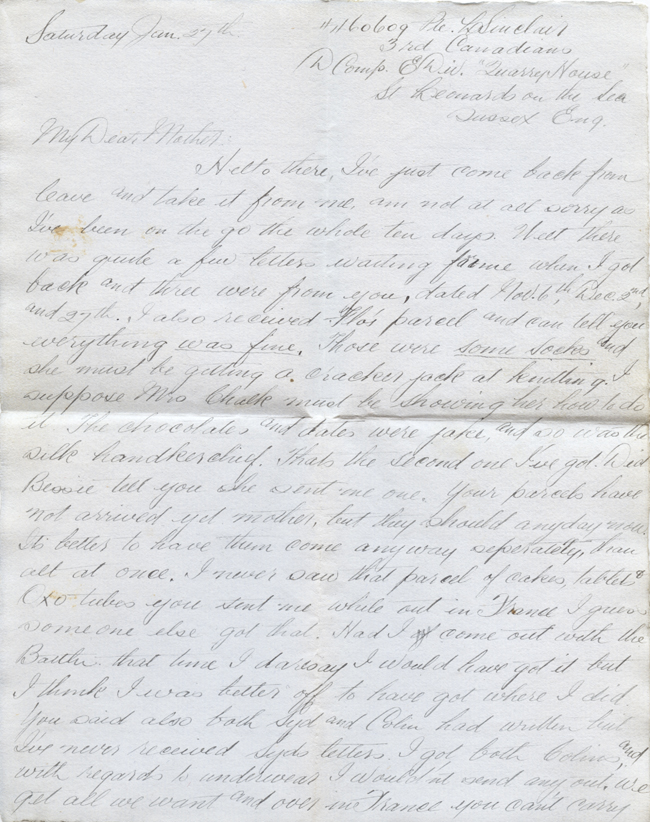 Saturday Jan. 27th
#460609 Pte. L Sinclair
3rd Canadians
D Comp. E Div. "Quarry House"
St Leonards on the Sea
Sussex Eng.
My Dear Mother:
Hello there, I've just come back from
leave and take it from me, am not at all sorry as
I've been on the go the whole ten days. Well there
was quite a few letters waiting for me when I got
back and three were from you, dated Nov. 6th, Dec. 2nd,
and 27th. I also received Flo's parcel and can tell you
everything was fine. Those were some socks and
she must be getting a cracker jack at knitting. I
suppose Mrs Chalk must be showing her how to do
it. The chocolates and dates were jake, and so was the
silk handkerchief. Thats the second one I've got. Did
Bessie tell you she sent me one. Your parcels have
not arrived yet mother, but they should anyday now.
Its better to have them come anyway seperately, than
all at once. I never saw that parcel of cakes, tablet &
Oxo tubes you sent me while out in France I guess
someone else got that. Had I come out with the
Battn. that time I daresay I would have got it but
I think I was better off to have got where I did.
You said also both Syd and Colin had written but
I've never received Syds letters. I got both Colins, and
with regards to underwear I would nt send any out, we
get all we want and over in France you cant carry